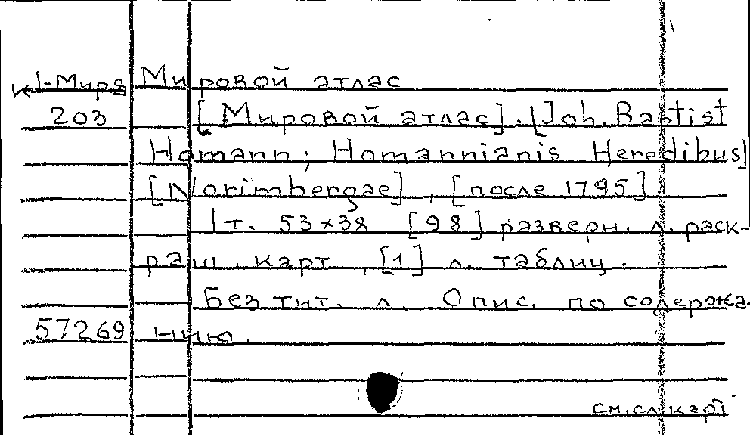 К1-Миря Мировой атлас
203 [Мировой атлас]. [Joh. Baptist
Homann; Homannianis Heredibus]
[Norimbergae], [после 1795]
1 т. 53×38 [98] разверн. л. раск-
раш. карт, [1] л. таблиц.
Без тит. л. Опис. по содержа-
57269 нию.
см. сл. карт